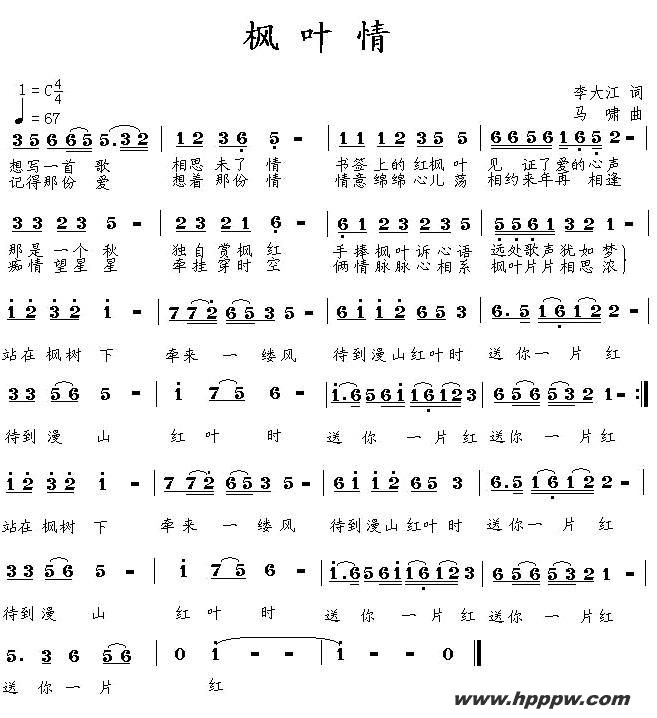 枫叶情
1=C 4/4
李大江 词
♩=67
马啸 曲
3 5 6 6 5 5. 3 2 | 1 2 3 6 5 - | 1 1 1 2 2 2 2 - | 6 6 5 6 1 6 5 -
想写一首歌 相思未了情 书签上的红枫叶 见证了爱的心声
记得那份爱 想着那份情 情意绵绵心儿荡 相约来年再相逢
3 3 2 3 5 - | 3 3 2 1 6 - | 6 1 2 3 2 3 5 | 5 5 6 1 3 3 2
那是一个秋 独自赏枫红 手捧枫叶诉心语 远处歌声犹如梦
痴情望星星 牵挂穿时空 俩情脉脉心相系 枫叶片片相思浓
i 2 3 2 i - | 7 7 2 6 5 3 5 - | 6 i i 2 6 5 3 | 6. 5 1 6 1 2 2 -
站在枫树下 牵来一缕风 待到漫山红叶时 送你一片红
3 3 5 6 5 - | i 7 5 6 - | i. 6 5 6 i 1 6 1 2 3 | 6 5 6 5 3 2 1 - :||
待到漫山 红叶时 送你一片红 送你一片红
i 2 3 2 i - | 7 7 2 6 5 3 5 - | 6 i i 2 6 5 3 | 6. 5 1 6 1 2 2 -
站在枫树下 牵来一缕风 待到漫山红叶时 送你一片红
3 3 5 6 5 - | i 7 5 6 - | i. 6 5 6 i 1 6 1 2 3 | 6 5 6 5 3 2 1 -
待到漫山 红叶时 送你一片红 送你一片红
5. 3 6 5 6 | 0 i - - | i - - 0 ||
送你一片 红
www.hpppw.com